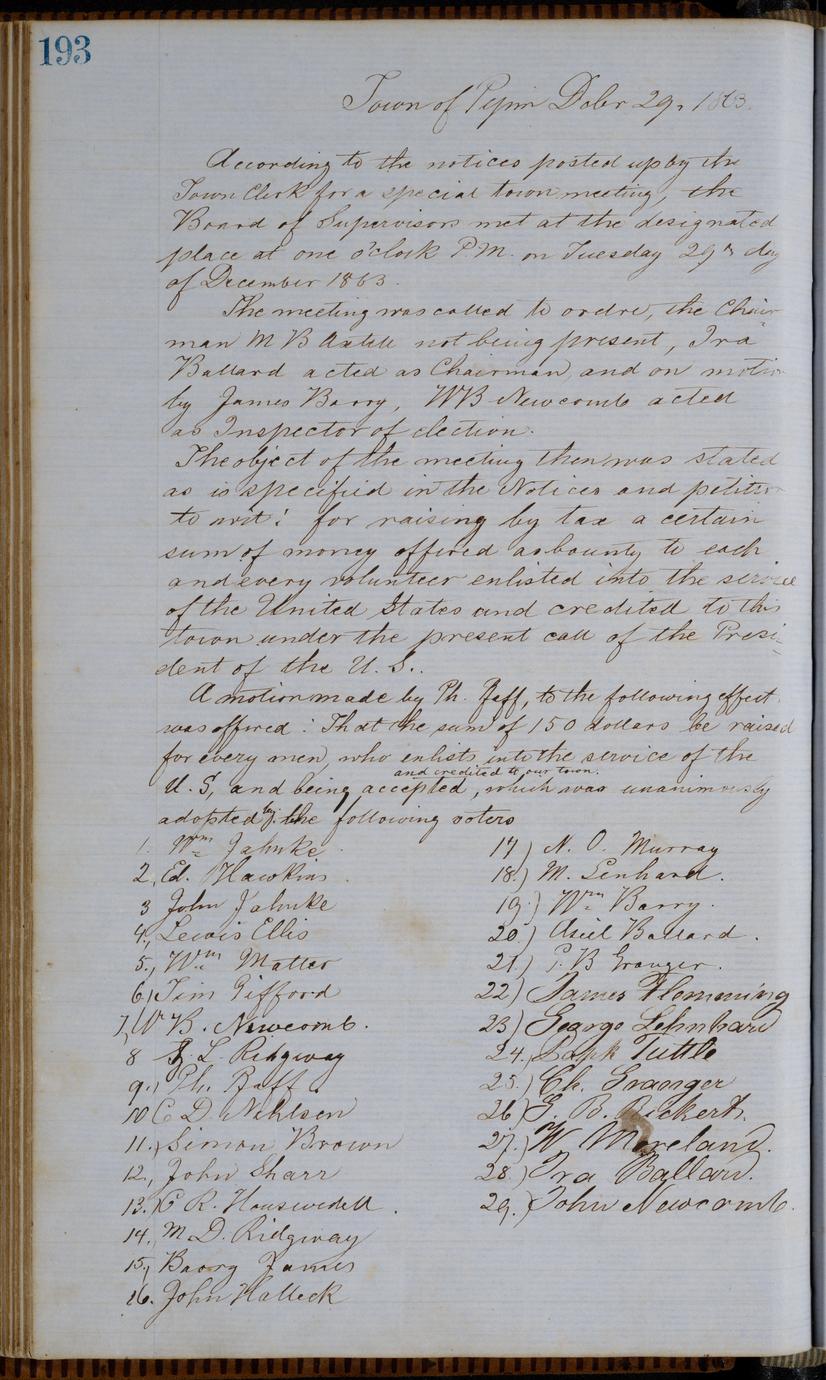 193
Town of Pepin Decbr 29, 1863.
According to the notices posted up by the
Town Clerk for a special town meeting, the
Board of Supervisors met at the designated
place at one o'clock P.M. on Tuesday 29th day
of December 1863.
The meeting was called to ordre, the Chair-
man M B Axtell not being present, Ira
Ballard acted as Chairman, and on motion
by James Barry, WB Newcomb acted
as Inspector of election.
The object of the meeting then was stated
as is specified in the Notices and petition
to wit: for raising by tax a certain
sum of money offered as bounty to each
and every volunteer enlisted into the service
of the United States and credited to this
town under the present call of the Presi-
dent of the U. S..
A motion made by Ph. Raff, to the following effect
was offered: That the sum of 150 dollars be raised
for every men, who enlists into the service of the
and credited to our town.
U. S, and being accepted, which was unanimously
adopted by the following voters
1. Wm Jahnke
2, Ed. Hawkins
3 John Jahnke
4., Lewis Ellis
5., Wm Matter
6., Tim Gifford
7, W B. Newcomb.
8 S. L. Ridgway
9., Ph. Raff.
10 C D Nihlsen
11., Simon Brown
12., John Sharr
13.) C R. Housewedell.
14., M D. Ridgway
15., Baory James
16. John Halleck
17) N. O. Murray
18.) M. Lenhard.
19.) Wm Barry.
20.) Asiel Ballard.
21.) P. B Granger.
22.) James Flemming
23.) George Lehnhard
24.) Tuttle
25.) Ch. Granger
26) B. Rickert.
27.) W Moreland.
28.) Ira Ballard.
29.) John Newcomb.